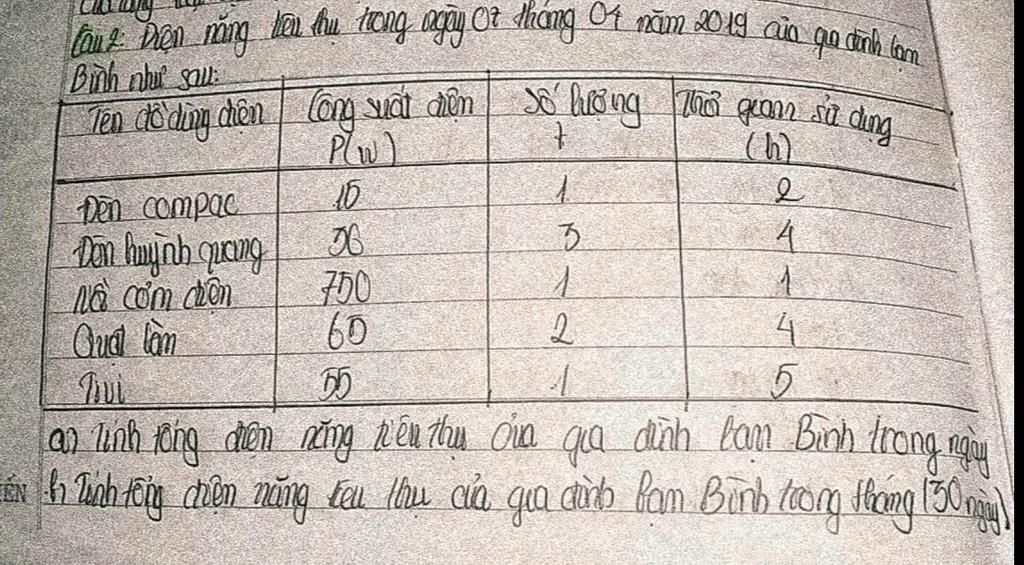 Câu 2: Điện năng tiêu thụ trong ngày 07 tháng 04 năm 2019 của gia đình bạn
Bình như sau:
Tên đồ dùng điện | Công suất điện P(W) | Số lượng | Thời gian sử dụng (h)
Đèn compac | 15 | 1 | 2
Đèn huỳnh quang | 36 | 3 | 4
Nồi cơm điện | 750 | 1 | 1
Quạt bàn | 60 | 2 | 4
Tivi | 55 | 1 | 5
a) Tính tổng điện năng tiêu thụ của gia đình bạn Bình trong ngày
b) Tính tổng điện năng tiêu thụ của gia đình bạn Bình trong tháng (30 ngày)